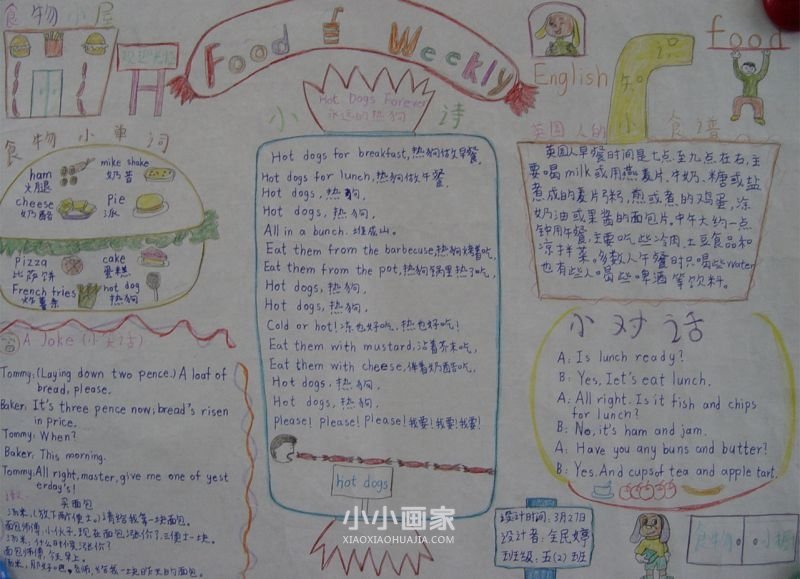 食物小屋
Food Weekly
food
English
小知识
小诗
Hot Dogs Forever
永远的热狗
Hot dogs for breakfast,热狗做早餐,
Hot dogs for lunch,热狗做午餐,
Hot dogs,热狗,
Hot dogs,热狗,
All in a bunch.堆成山。
Eat them from the barbecuse,热狗烤着吃,
Eat them from the pot,热狗锅里热了吃,
Hot dogs,热狗,
Hot dogs,热狗,
Cold or hot!冻也好吃、热也好吃!
Eat them with mustard,沾着芥末吃,
Eat them with cheese,伴着奶酪吃,
Hot dogs,热狗,
Hot dogs,热狗,
Please! Please! Please!我要!我要!我要!
hot dogs
食物小单词
ham
火腿
mike shake
奶昔
cheese
奶酪
Pie
派
pizza
比萨饼
cake
蛋糕
French fries
炸薯条
hot dog
热狗
A Joke (小笑话)
Tommy:(Laying down two pence.) A loaf of
bread, please.
Baker: It's three pence now; bread's risen
in price.
Tommy: When?
Baker: This morning.
Tommy: All right, master, give me one of yest
erday's!
买面包
英国人的小食谱
英国人早餐时间是七点至九点左右,主
要喝milk或用燕麦片、牛奶、糖或盐
煮成的麦片粥,煎或煮的鸡蛋,涂
奶油或果酱的面包片。中午大约一点
钟用午餐,主要吃些冷肉、土豆食品和
凉拌菜。多数人午餐时只喝些water
也有些人喝些啤酒等饮料。
小对话
A: Is lunch ready?
B: Yes, Iet's eat lunch.
A: All right. Is it fish and chips
for lunch?
B: No, it's ham and jam.
A: Have you any buns and butter?
B: Yes. And cups of tea and apple tart.
设计时间:3月27日
设计者:全民婷
班级:五(2)班
小小画家
XIAOXIAOHUAJIA.COM